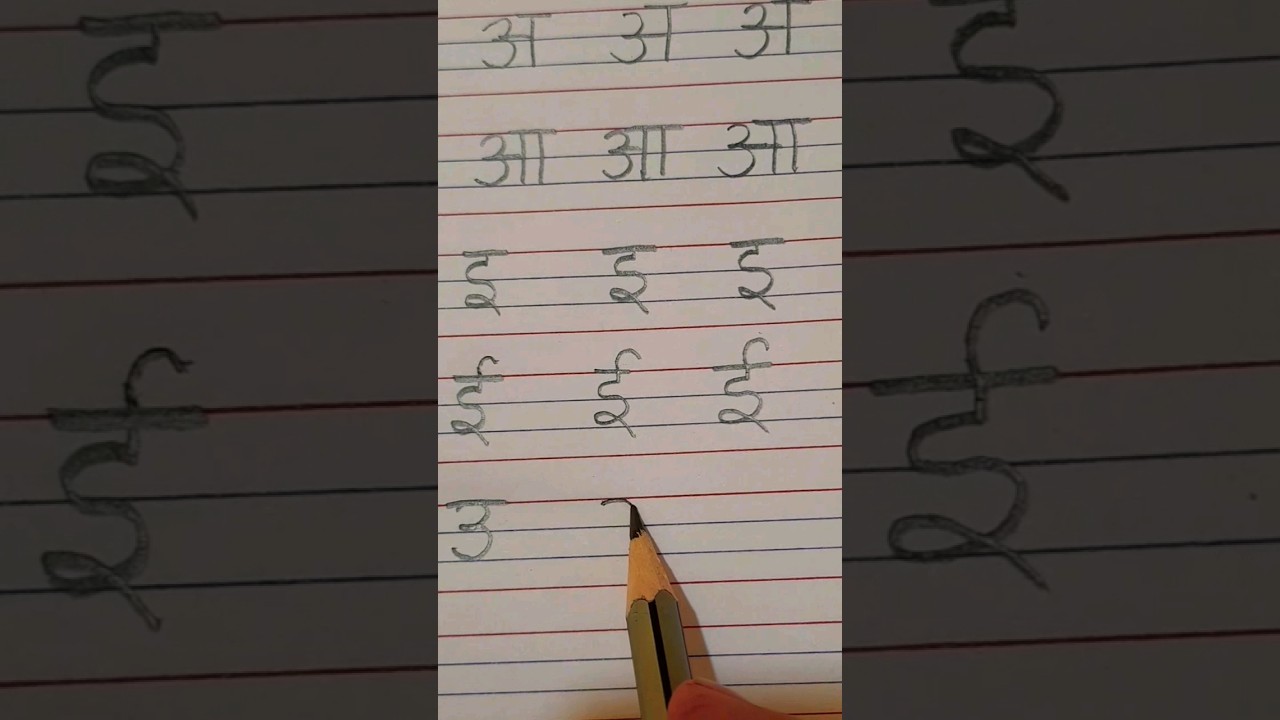 अ अ अ
आ आ आ
इ इ इ
ई ई ई
उ